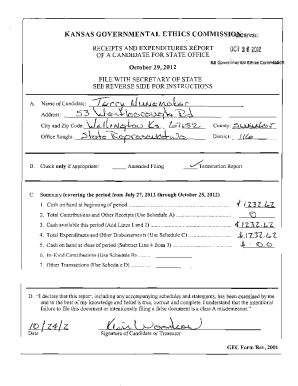 KANSAS GOVERNMENTAL ETHICS COMMISSION
RECEIPTS AND EXPENDITURES REPORT
OF A CANDIDATE FOR STATE OFFICE
OCT 2012
KS Governmental Ethics Commission
October 29, 2012
FILE WITH SECRETARY OF STATE
SEE REVERSE SIDE FOR INSTRUCTIONS
A. Name of Candidate: Terry Nunemaker
Address: 53 Westborough Rd
City and Zip Code: Wellington Ks. 67152 County: Sumner
Office Sought: State Representative District: 116
B. Check only if appropriate: Amended Filing ✓ Termination Report
C. Summary (covering the period from July 27, 2012 through October 25, 2012)
1. Cash on hand at beginning of period $1232.62
2. Total Contributions and Other Receipts (Use Schedule A) 0
3. Cash available this period (Add Lines 1 and 2) $1232.62
4. Total Expenditures and Other Disbursements (Use Schedule C) $1232.62
5. Cash on hand at close of period (Subtract Line 4 from 3) $ 0.0
6. In-Kind Contributions (Use Schedule B)
7. Other Transactions (Use Schedule D)
D. "I declare that this report, including any accompanying schedules and statements, has been examined by me
and to the best of my knowledge and belief is true, correct and complete. I understand that the intentional
failure to file this document or intentionally filing a false document is a class A misdemeanor."
10/24/2
Date Signature of Candidate or Treasurer
GEC Form Rev, 2001